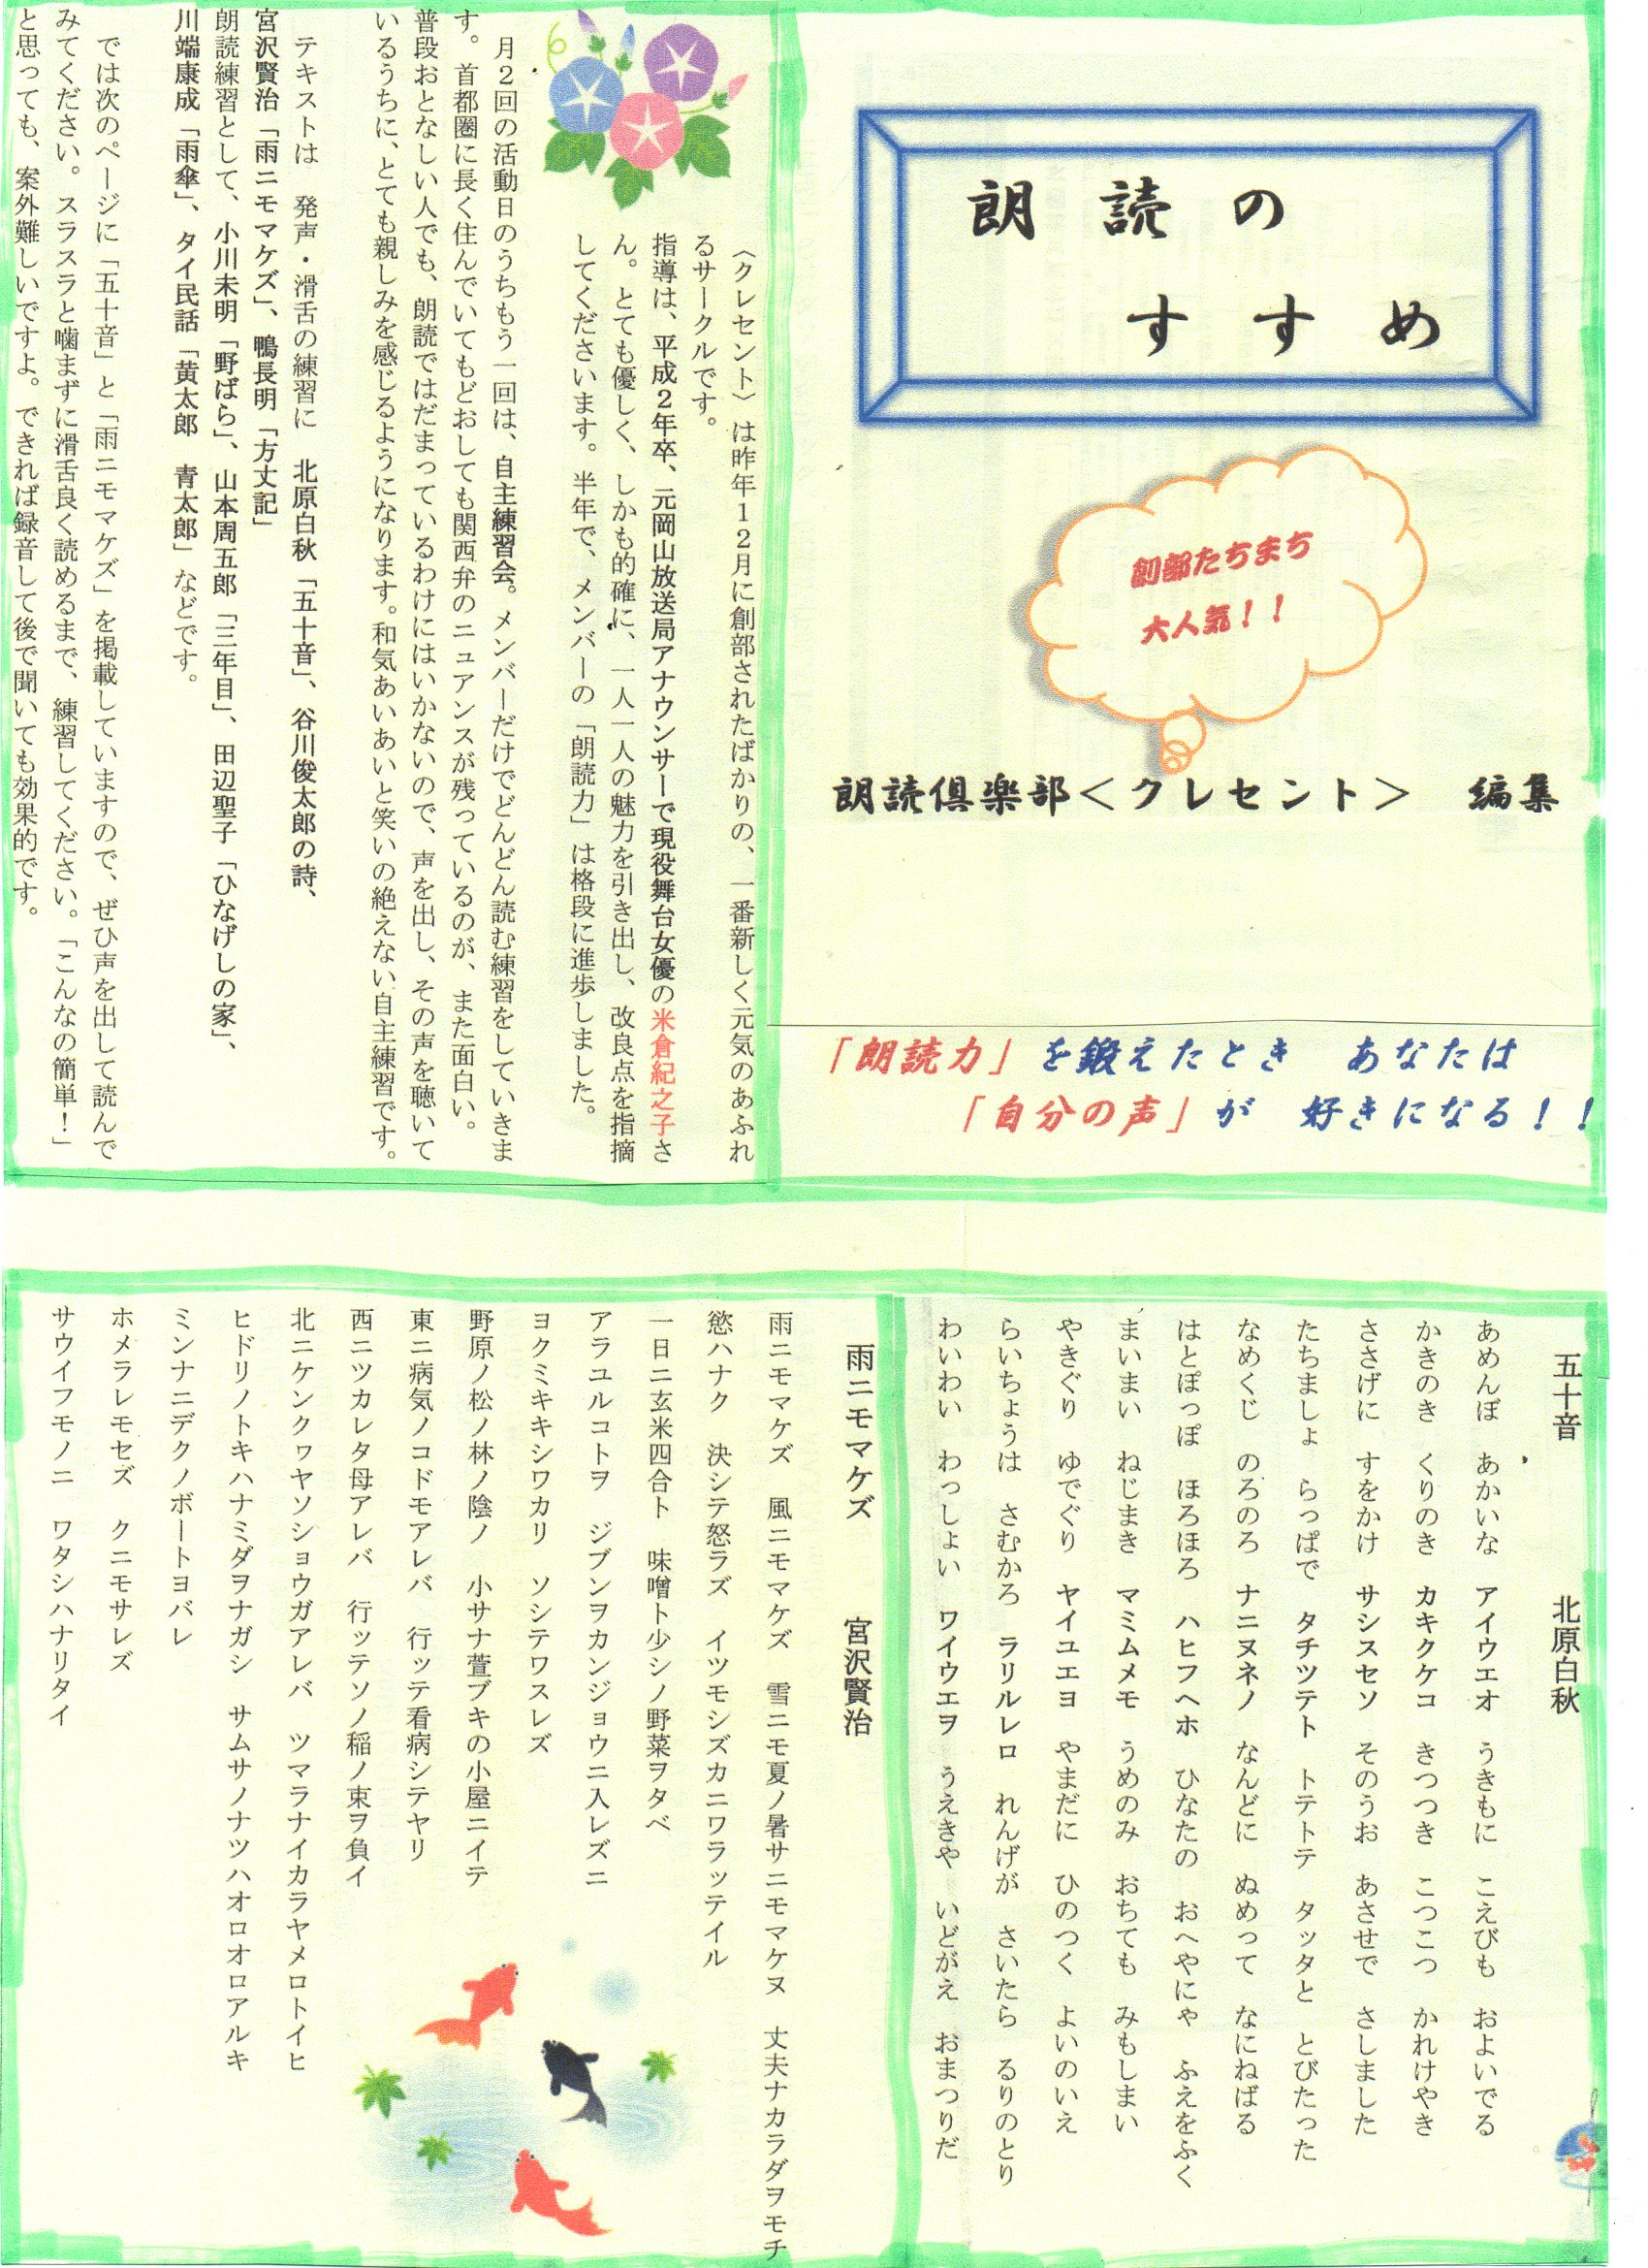 朗読の
すすめ
創部たちまち
大人気！！
朗読倶楽部＜クレセント＞　編集
「朗読力」を鍛えたとき　あなたは
「自分の声」が　好きになる！！
〈クレセント〉は昨年１２月に創部されたばかりの、一番新しく元気のあふれ
るサークルです。
指導は、平成２年卒、元岡山放送局アナウンサーで現役舞台女優の米倉紀之子さ
ん。とても優しく、しかも的確に、一人一人の魅力を引き出し、改良点を指摘
してくださいます。半年で、メンバーの「朗読力」は格段に進歩しました。
月２回の活動日のうちもう一回は、自主練習会。メンバーだけでどんどん読む練習をしていきま
す。首都圏に長く住んでいてもどおしても関西弁のニュアンスが残っているのが、また面白い。
普段おとなしい人でも、朗読ではだまっているわけにはいかないので、声を出し、その声を聴いて
いるうちに、とても親しみを感じるようになります。和気あいあいと笑いの絶えない自主練習です。
テキストは　発声・滑舌の練習に　北原白秋「五十音」、谷川俊太郎の詩、
宮沢賢治「雨ニモマケズ」、鴨長明「方丈記」
朗読練習として、小川未明「野ばら」、山本周五郎「三年目」、田辺聖子「ひなげしの家」、
川端康成「雨傘」、タイ民話「黄太郎　青太郎」などです。
では次のページに「五十音」と「雨ニモマケズ」を掲載していますので、ぜひ声を出して読んで
みてください。スラスラと噛まずに滑舌良く読めるまで、練習してください。「こんなの簡単！」
と思っても、案外難しいですよ。できれば録音して後で聞いても効果的です。
五十音　　北原白秋
あめんぼ　あかいな　アイウエオ　うきもに　こえびも　およいでる
かきのき　くりのき　カキクケコ　きつつき　こつこつ　かれけやき
ささげに　すをかけ　サシスセソ　そのうお　あさせで　さしました
たちましょ　らっぱで　タチツテト　トテトテ　タッタと　とびたった
なめくじ　のろのろ　ナニヌネノ　なんどに　ぬめって　なにねばる
はとぽっぽ　ほろほろ　ハヒフヘホ　ひなたの　おへやにゃ　ふえをふく
まいまい　ねじまき　マミムメモ　うめのみ　おちても　みもしまい
やきぐり　ゆでぐり　ヤイユエヨ　やまだに　ひのつく　よいのいえ
らいちょうは　さむかろ　ラリルレロ　れんげが　さいたら　るりのとり
わいわい　わっしょい　ワイウエヲ　うえきや　いどがえ　おまつりだ
雨ニモマケズ　　宮沢賢治
雨ニモマケズ　風ニモマケズ　雪ニモ夏ノ暑サニモマケヌ　丈夫ナカラダヲモチ
慾ハナク　決シテ怒ラズ　イツモシズカニワラッテイル
一日ニ玄米四合ト　味噌ト少シノ野菜ヲタベ
アラユルコトヲ　ジブンヲカンジョウニ入レズニ
ヨクミキキシワカリ　ソシテワスレズ
野原ノ松ノ林ノ陰ノ　小サナ萱ブキの小屋ニイテ
東ニ病気ノコドモアレバ　行ッテ看病シテヤリ
西ニツカレタ母アレバ　行ッテソノ稲ノ束ヲ負イ
北ニケンクヮヤソショウガアレバ　ツマラナイカラヤメロトイヒ
ヒドリノトキハナミダヲナガシ　サムサノナツハオロオロアルキ
ミンナニデクノボートヨバレ
ホメラレモセズ　クニモサレズ
サウイフモノニ　ワタシハナリタイ